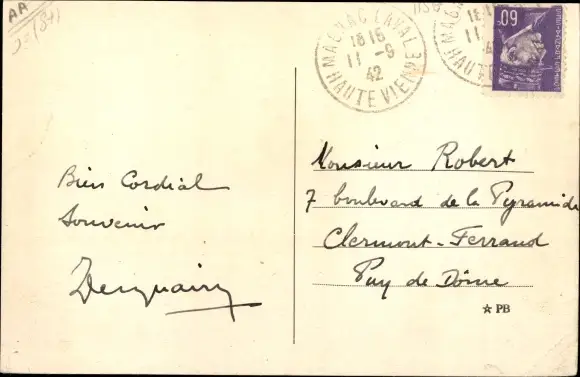 AA
MAGNAC LAVAL
1816
11 -9
42
HAUTE VIENNE
Bien Cordial
Souvenir
Monsieur Robert
7 boulevard de la Pyramide
Clermont-Ferrand
Puy de Dôme
☆ PB